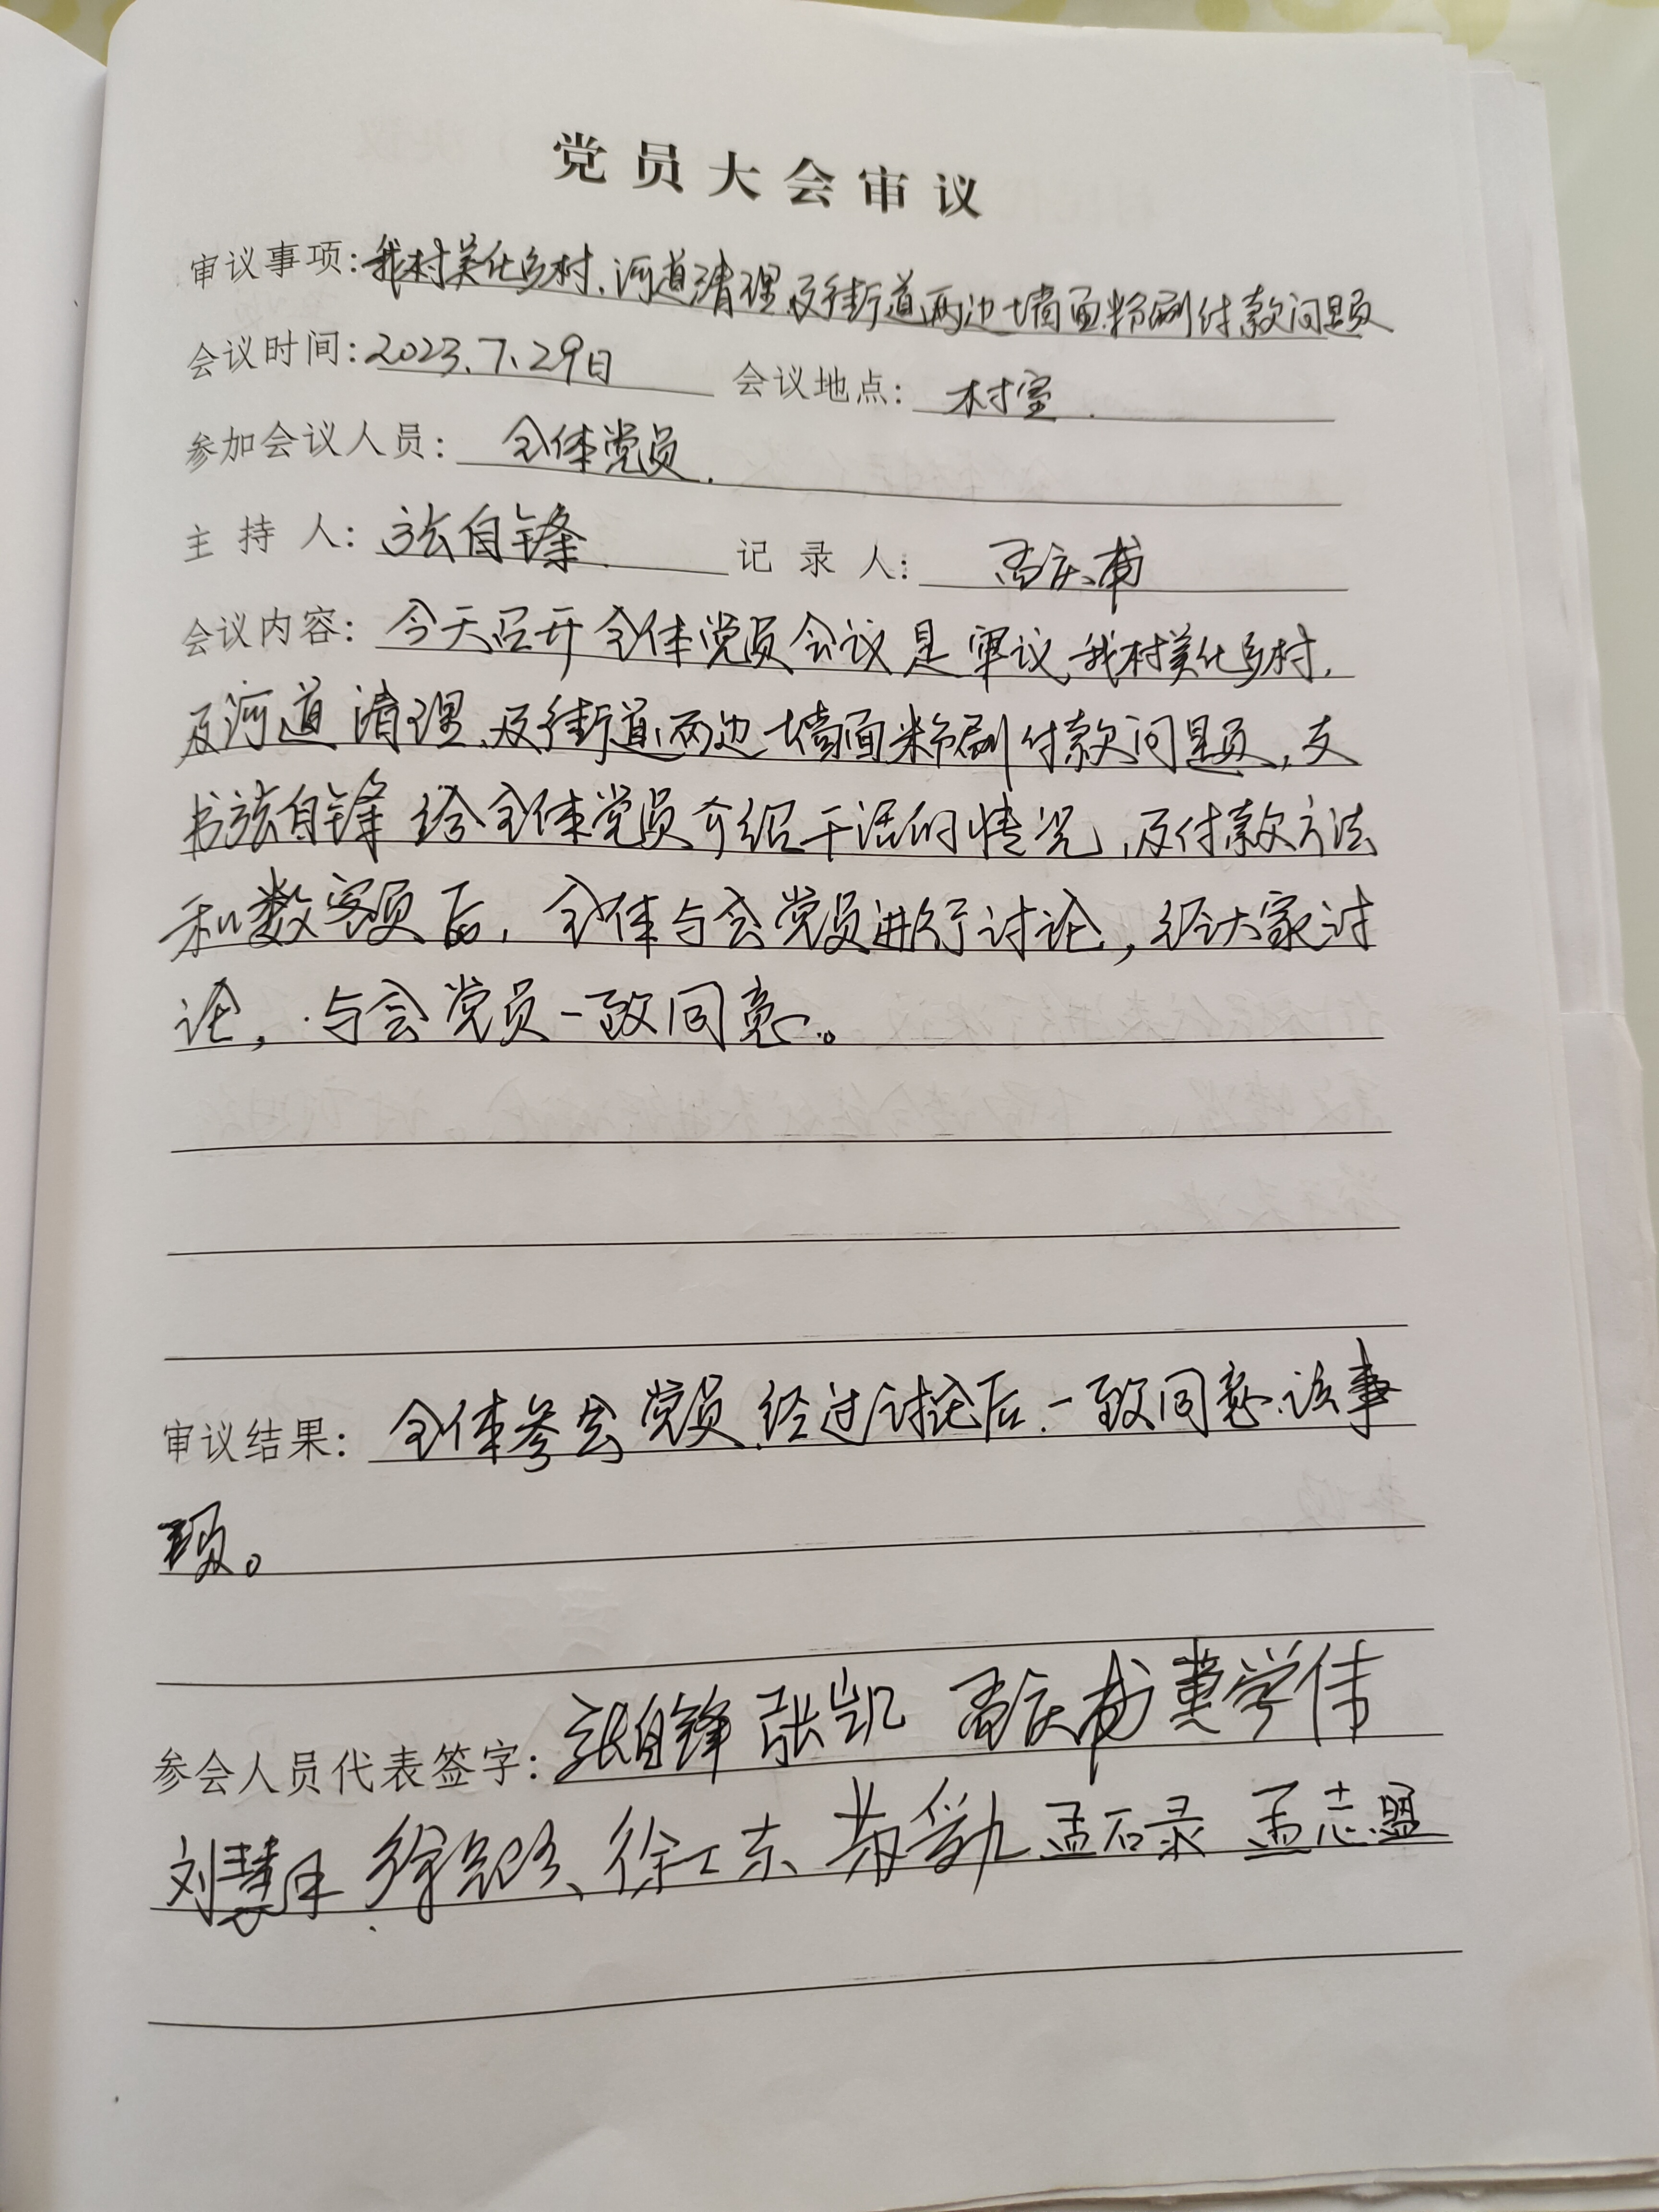 党员大会审议
审议事项:我村美化乡村、河道清理、及街道两边墙面粉刷付款问题
会议时间:2023、7、29日 会议地点:村室.
参加会议人员:全体党员.
主持人:张自锋. 记录人:孟庆甫
会议内容:今天召开全体党员会议是审议我村美化乡村,
及河道清理、及街道两边墙面粉刷付款问题,支
书张自锋给全体党员介绍干活的情况,及付款方法
和数额后,全体与会党员进行讨论,经大家讨
论,与会党员一致同意。
审议结果:全体参会党员经过讨论后.一致同意该事
项。
参会人员代表签字:张自锋 张凯 孟庆甫 冀学伟
刘慧 徐 徐 东 孟石录 孟志盟